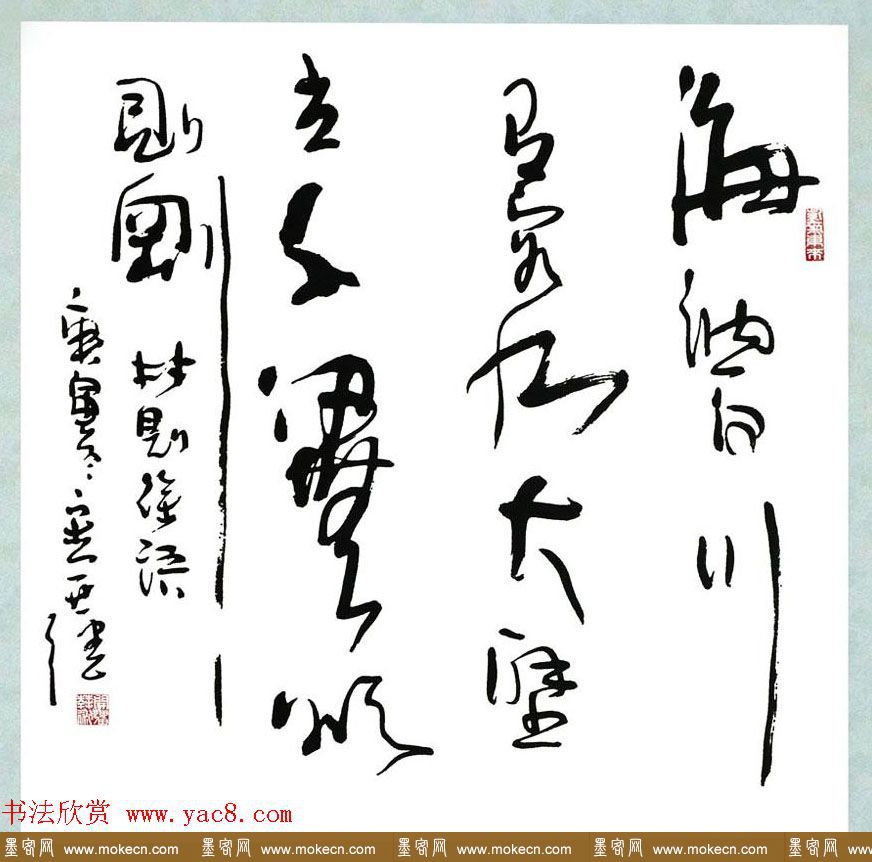 海納百川
有容乃大壁
立千仞無欲
則剛 林則徐語
庚寅冬
书法欣赏 www.yac8.com
墨客网 www.mokecn.com 墨客网 www.mokecn.com 墨客网 www.mokecn.com 墨客网 www.mokecn.com 墨客网 www.mokecn.com